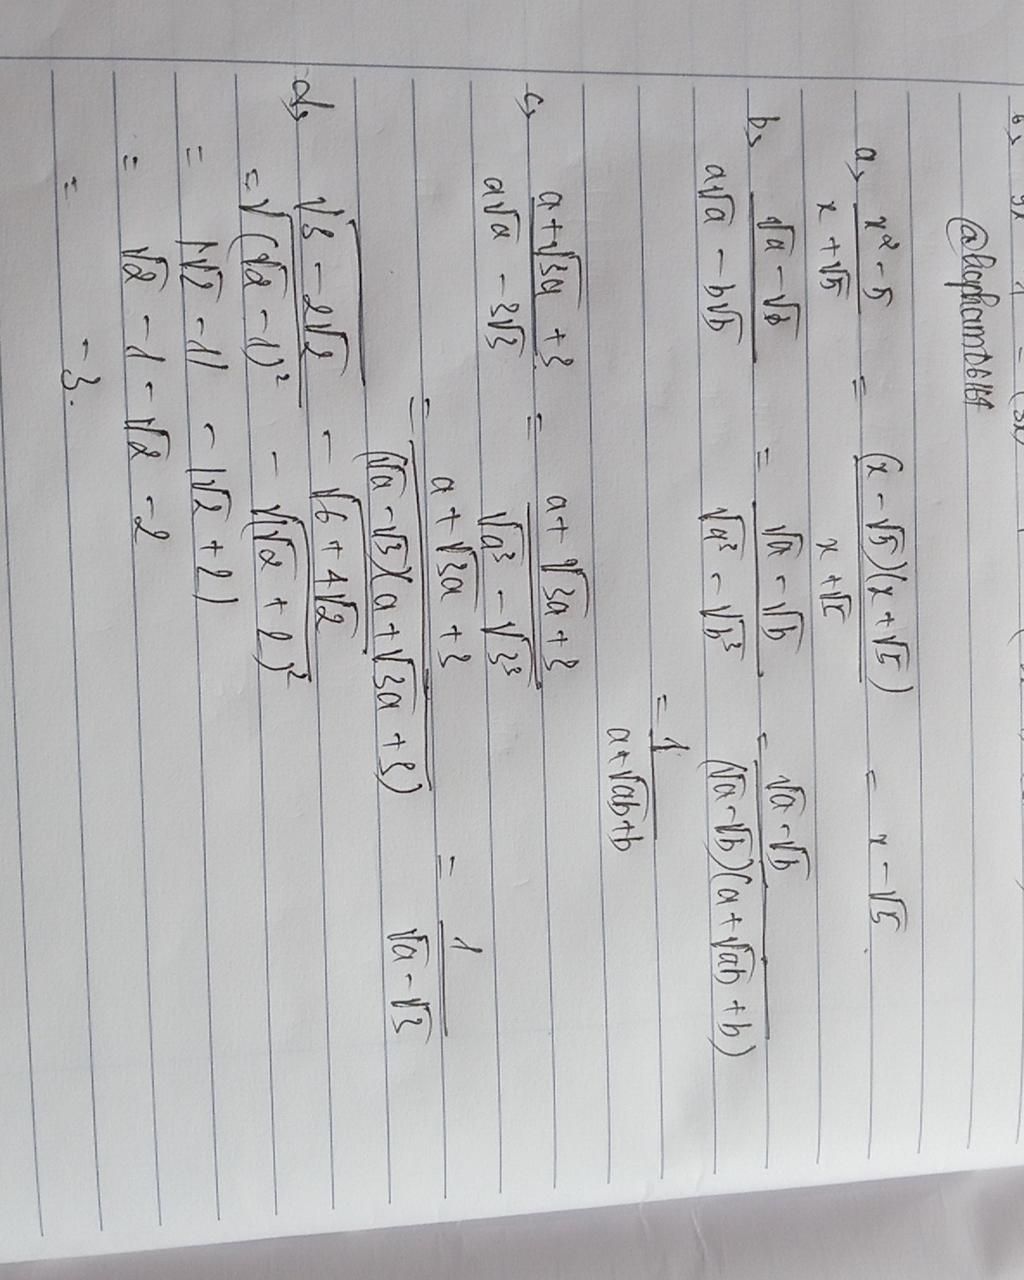 @haphamD6164
a, x² - 5 / x + √5 = (x - √5)(x + √5) / x + √5 = x - √5.
b, √a - √b / a√a - b√b = √a - √b / √a³ - √b³ = √a - √b / (√a - √b)(a + √ab + b)
= 1 / a + √ab + b
c, a + √3a + 3 / a√a - 3√3 = a + √3a + 3 / √a³ - √3³
= a + √3a + 3 / (√a - √3)(a + √3a + 3) = 1 / √a - √3
d, √3 - 2√2 - √6 + 4√2
= √(√2 - 1)² - √(√2 + 2)²
= |√2 - 1| - |√2 + 2|
= √2 - 1 - √2 - 2
= -3.